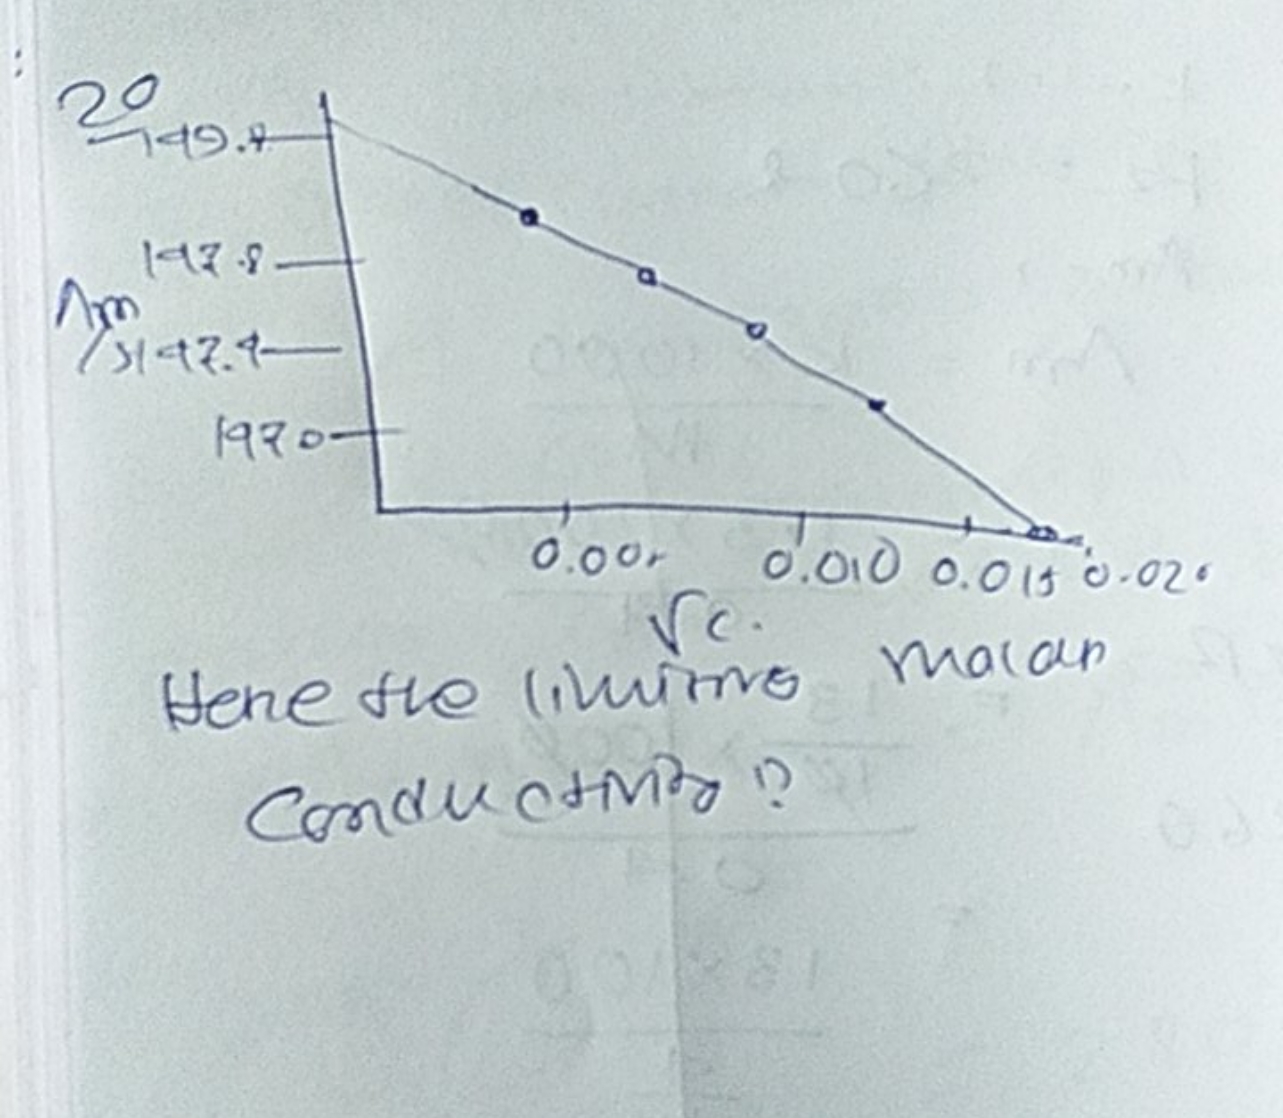 20
149.8
147.8
Λm
/S147.4
147.0
0.00
0.010 0.015 0.020
√c.
Here the limiting molar
Conductivity?